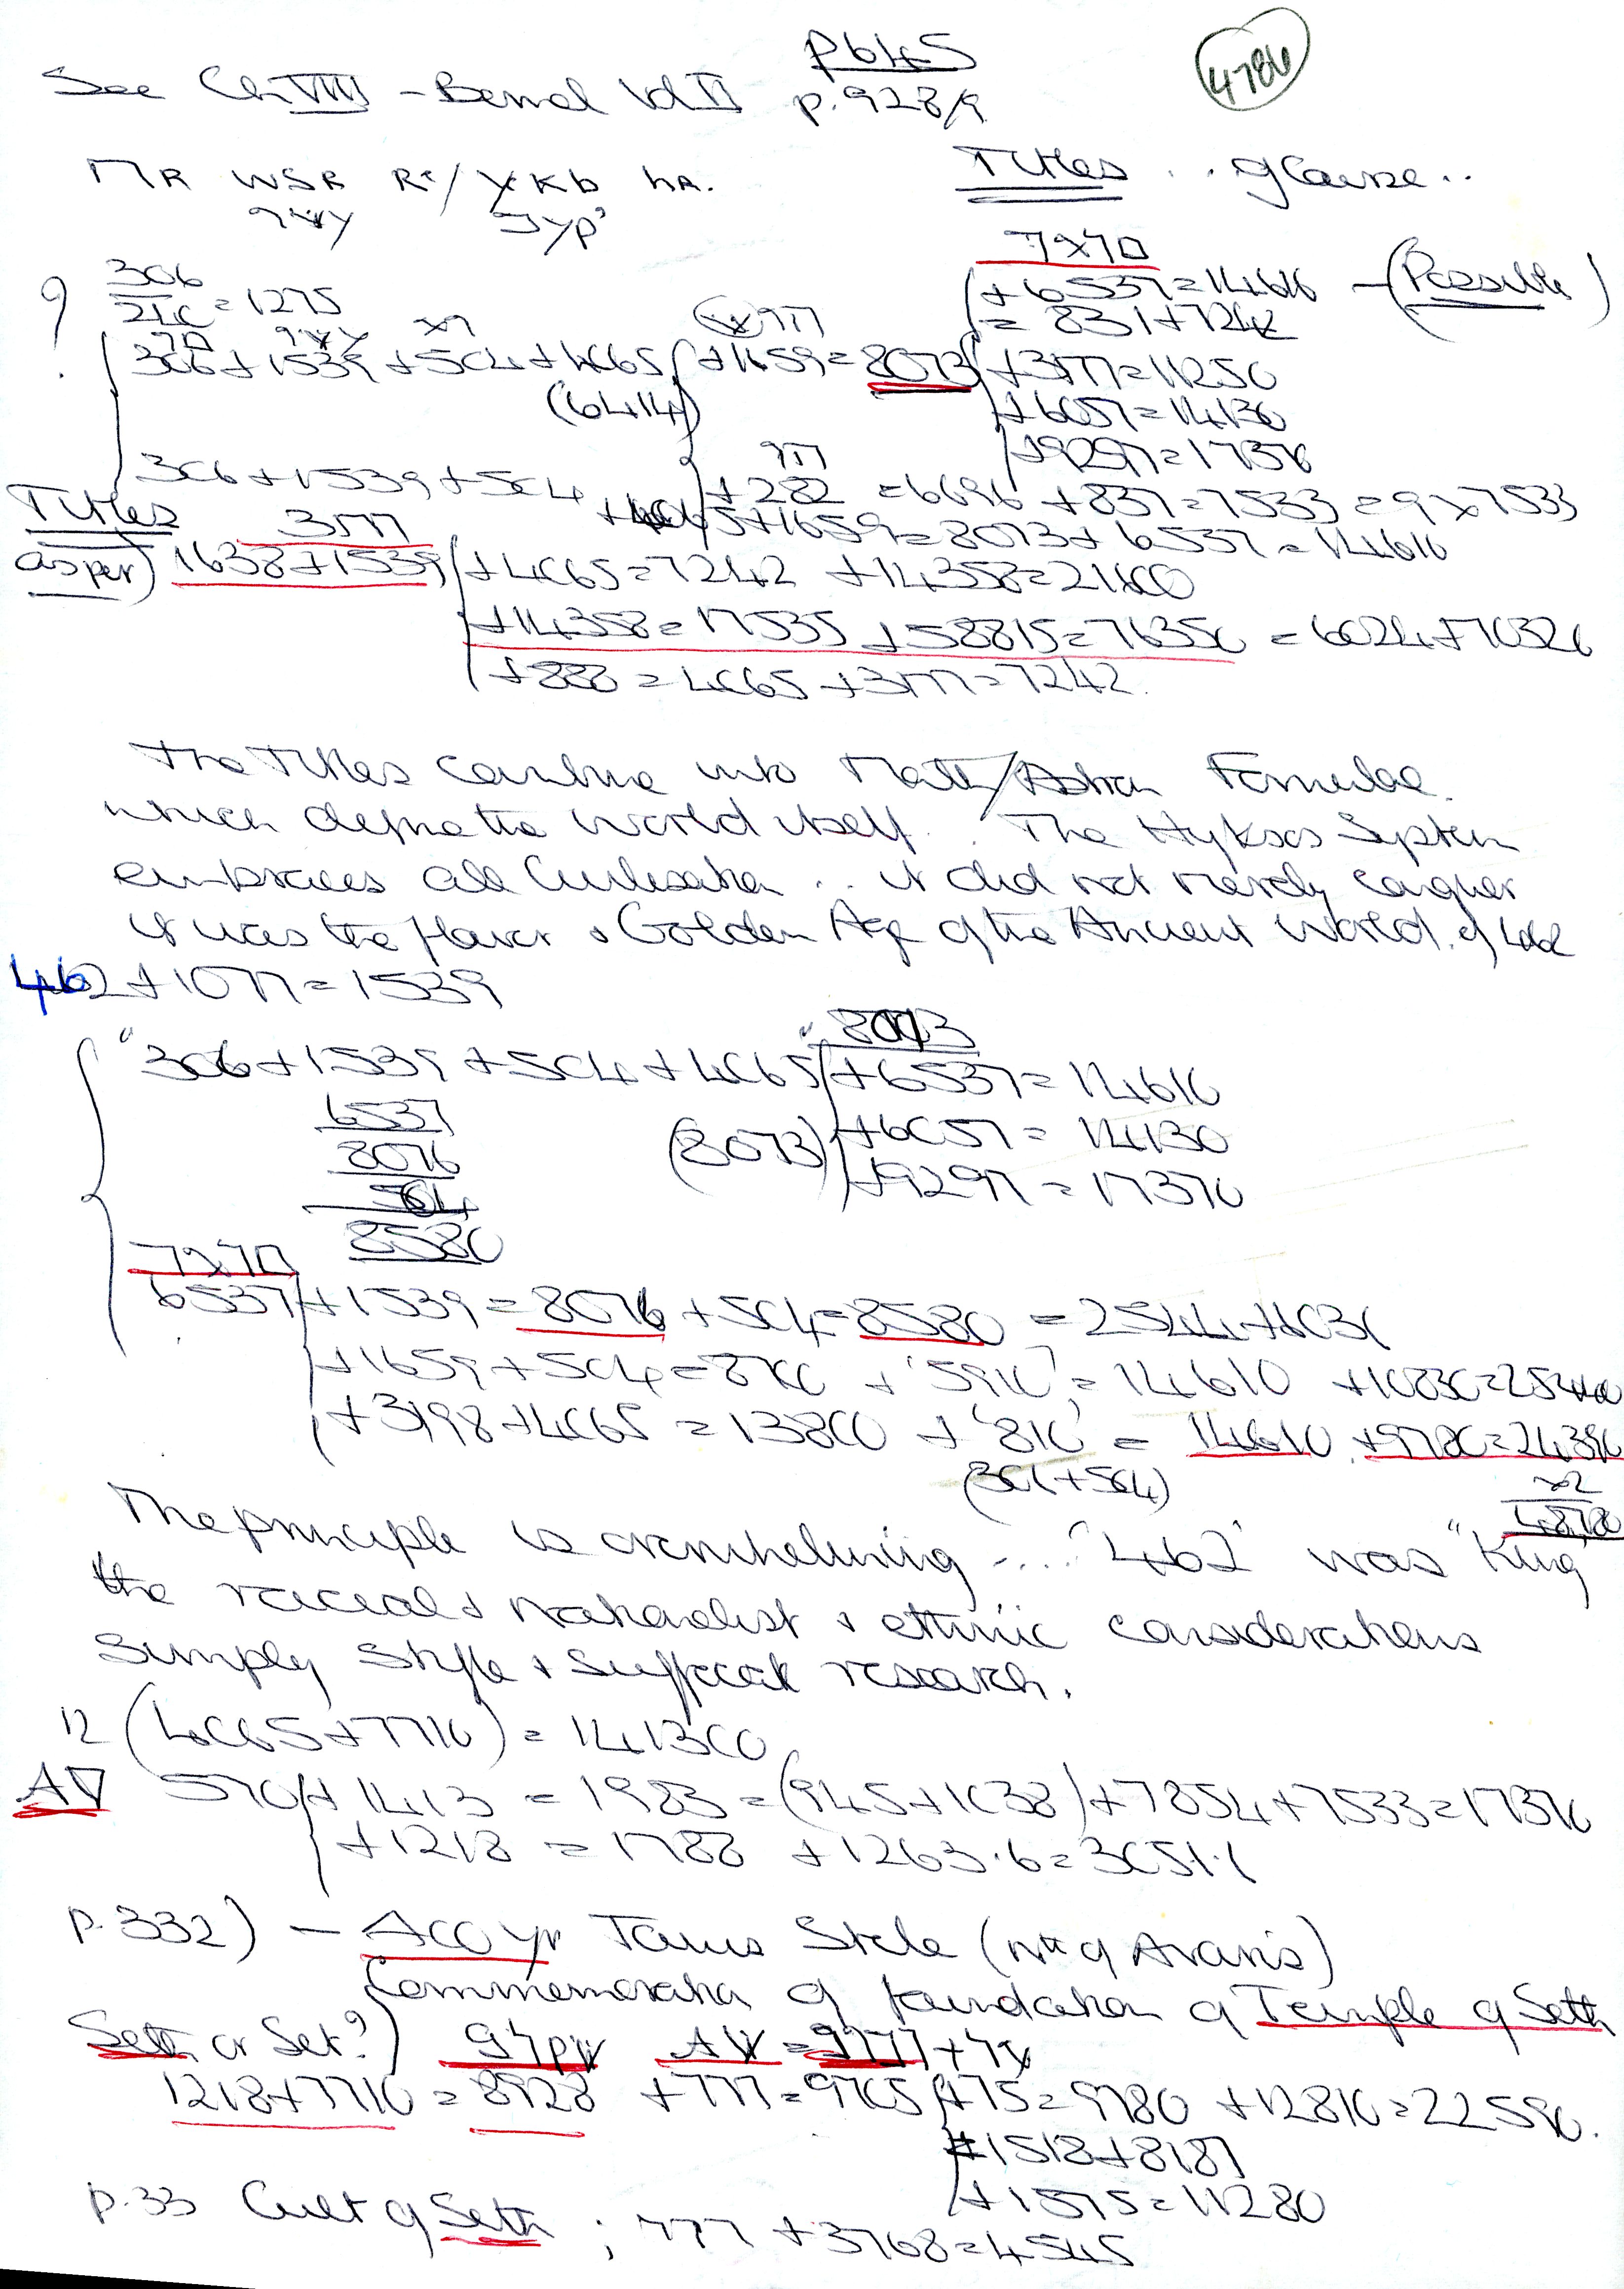 See Ch VIII - Bernal Vol II p645
p.928/9
4786
MR WSR Re/ YKb hR.
Titles .. of Course ..
7x70
306
= 1275
+6537=14616 - (Possible)
= 831+1242
306+1539+504+4065 +1659=8073 +3177=11250
(6414)
+6057=14130
+9297=17370
306+1539+504
+282 =6696 +837=7533 = 9x7533
+4065+1659=8073+6537=14610
Titles
as per) 1638+1539 +4065=7242 +14358=21600
3177
+14358=17535 +58815=76350 = 6024+70326
+888=4065+3177=7242.
The Titles combine into Math/Astron Formulae.
which define the World itself. The Hyksos System
embraces all Civilisation .. it did not merely conquer
it was the flower & Golden Age of the Ancient World. of 462
462+1077=1539
8073
"306+1539+504+4065 +6537=14610
6537
8076
504
8580
(8073) +6057= 14130
+9297=17370
7x70
6537+1539=8076+504=8580 =2544+6036
+1659+504=8700 + '5910' = 14610 +10830=25440
+3198+4065 = 13800 + '810' = 14610 +9780=24390
(306+504)
x2
48780
The principle is overwhelming .... '462' was "King
the racial & nationalist & ethnic considerations
simply stifle & suffocate research.
12 (4065+7710) = 141300
570+1413 = 1983 = (945+1038)+7854+7533=17370
+1218 = 1788 +1263.6=3051.6
p.332) - 400 yr Tanis Stele (Nth of Avaris)
Commemoration of foundation of Temple of Seth
Seth or Set?)
1218+7710 = 8928 +777=9705 +75=9780 +12810=22590.
+1518+8187
+1575=11280
p.33 Cult of Seth ; 777 +3768=4545